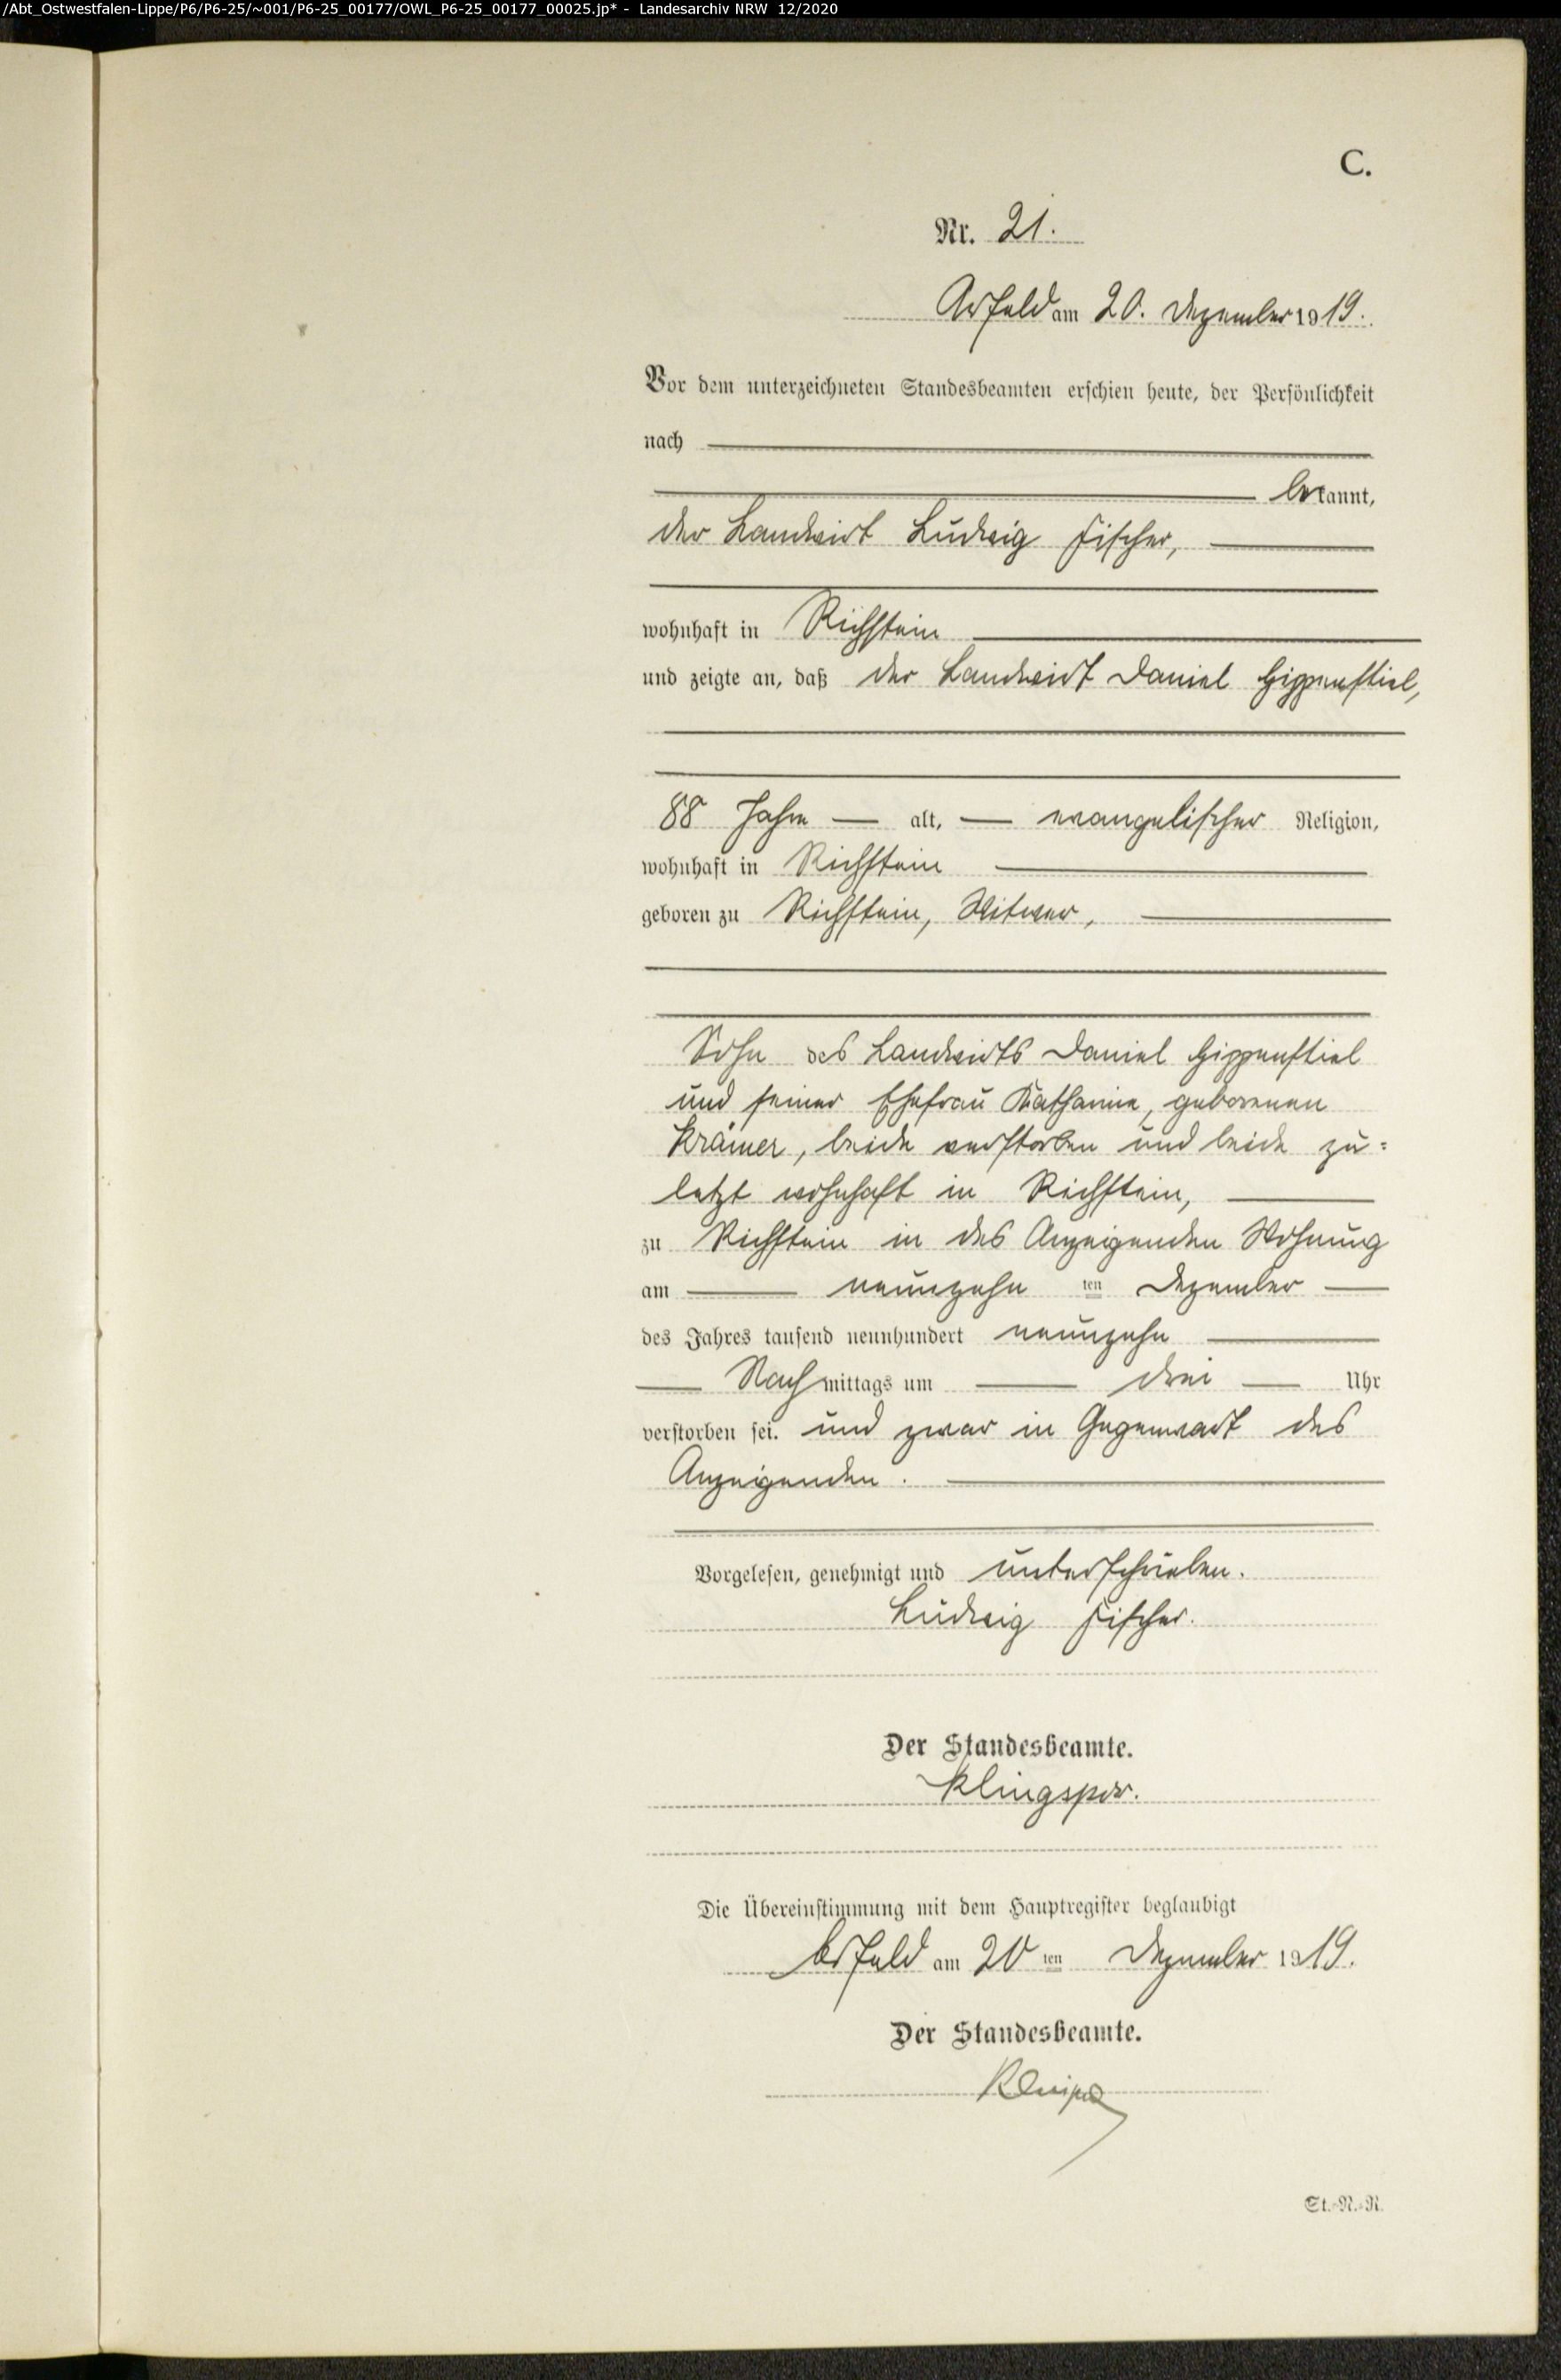 /Abt_Ostwestfalen-Lippe/P6/P6-25/~001/P6-25_00177/OWL_P6-25_00177_00025.jp* - Landesarchiv NRW 12/2020
C.
Nr. 21.
Arfeld am 20. Dezember 1919.
Vor dem unterzeichneten Standesbeamten erschien heute, der Persönlichkeit
nach
bekannt,
der Landwirt Ludwig Fischer,
wohnhaft in Richstein
und zeigte an, daß der Landwirt Daniel Gippenstiel,
88 Jahre alt, evangelischer Religion,
wohnhaft in Richstein
geboren zu Richstein, Witwer,
Sohn des Landwirts Daniel Gippenstiel
und seiner Ehefrau Katharine, geborenen
Krämer, beide verstorben und beide zu=
letzt wohnhaft in Richstein,
zu Richstein in des Anzeigenden Wohnung
am neunzehn ten Dezember
des Jahres tausend neunhundert neunzehn
Nachmittags um drei Uhr
verstorben sei. und zwar in Gegenwart des
Anzeigenden.
Vorgelesen, genehmigt und unterschrieben.
Ludwig Fischer.
Der Standesbeamte.
Klingspor.
Die Übereinstimmung mit dem Hauptregister beglaubigt
Arfeld am 20 ten Dezember 1919.
Der Standesbeamte.
St.-N.-R.